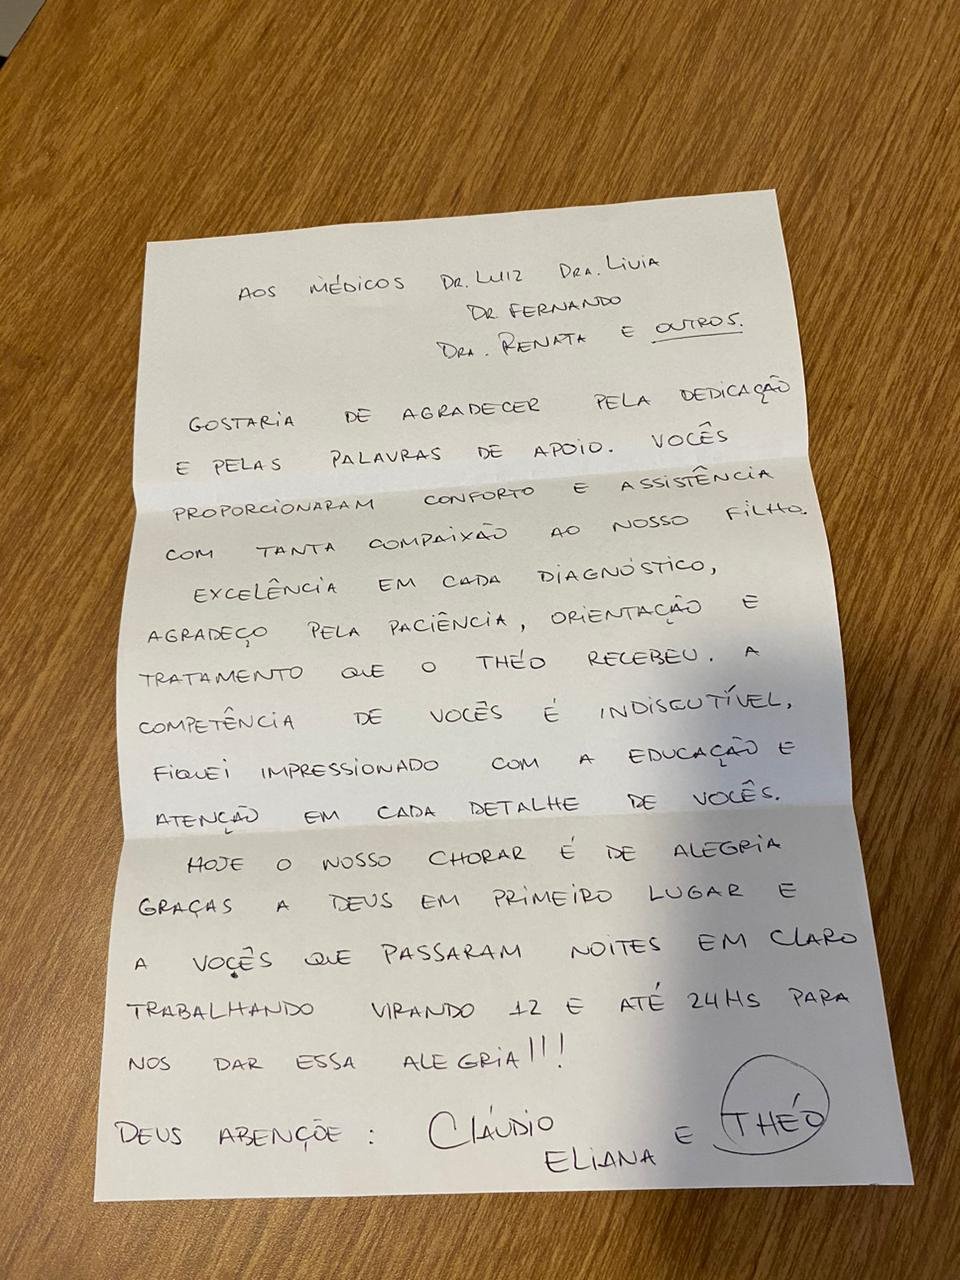 AOS MÉDICOS DR. LUIZ DRA. LIVIA
DR. FERNANDO
DRA. RENATA E OUTROS.
GOSTARIA DE AGRADECER PELA DEDICAÇÃO
E PELAS PALAVRAS DE APOIO. VOCÊS
PROPORCIONARAM CONFORTO E ASSISTÊNCIA
COM TANTA COMPAIXÃO AO NOSSO FILHO.
EXCELÊNCIA EM CADA DIAGNÓSTICO,
AGRADEÇO PELA PACIÊNCIA, ORIENTAÇÃO E
TRATAMENTO QUE O THÉO RECEBEU. A
COMPETÊNCIA DE VOCÊS É INDISCUTÍVEL,
FIQUEI IMPRESSIONADO COM A EDUCAÇÃO E
ATENÇÃO EM CADA DETALHE DE VOCÊS.
HOJE O NOSSO CHORAR É DE ALEGRIA
GRAÇAS A DEUS EM PRIMEIRO LUGAR E
A VOÇÊS QUE PASSARAM NOITES EM CLARO
TRABALHANDO VIRANDO 12 E ATÉ 24HS PARA
NOS DAR ESSA ALEGRIA!!!
DEUS ABENÇÕE: CLÁUDIO
ELIANA E THÉO